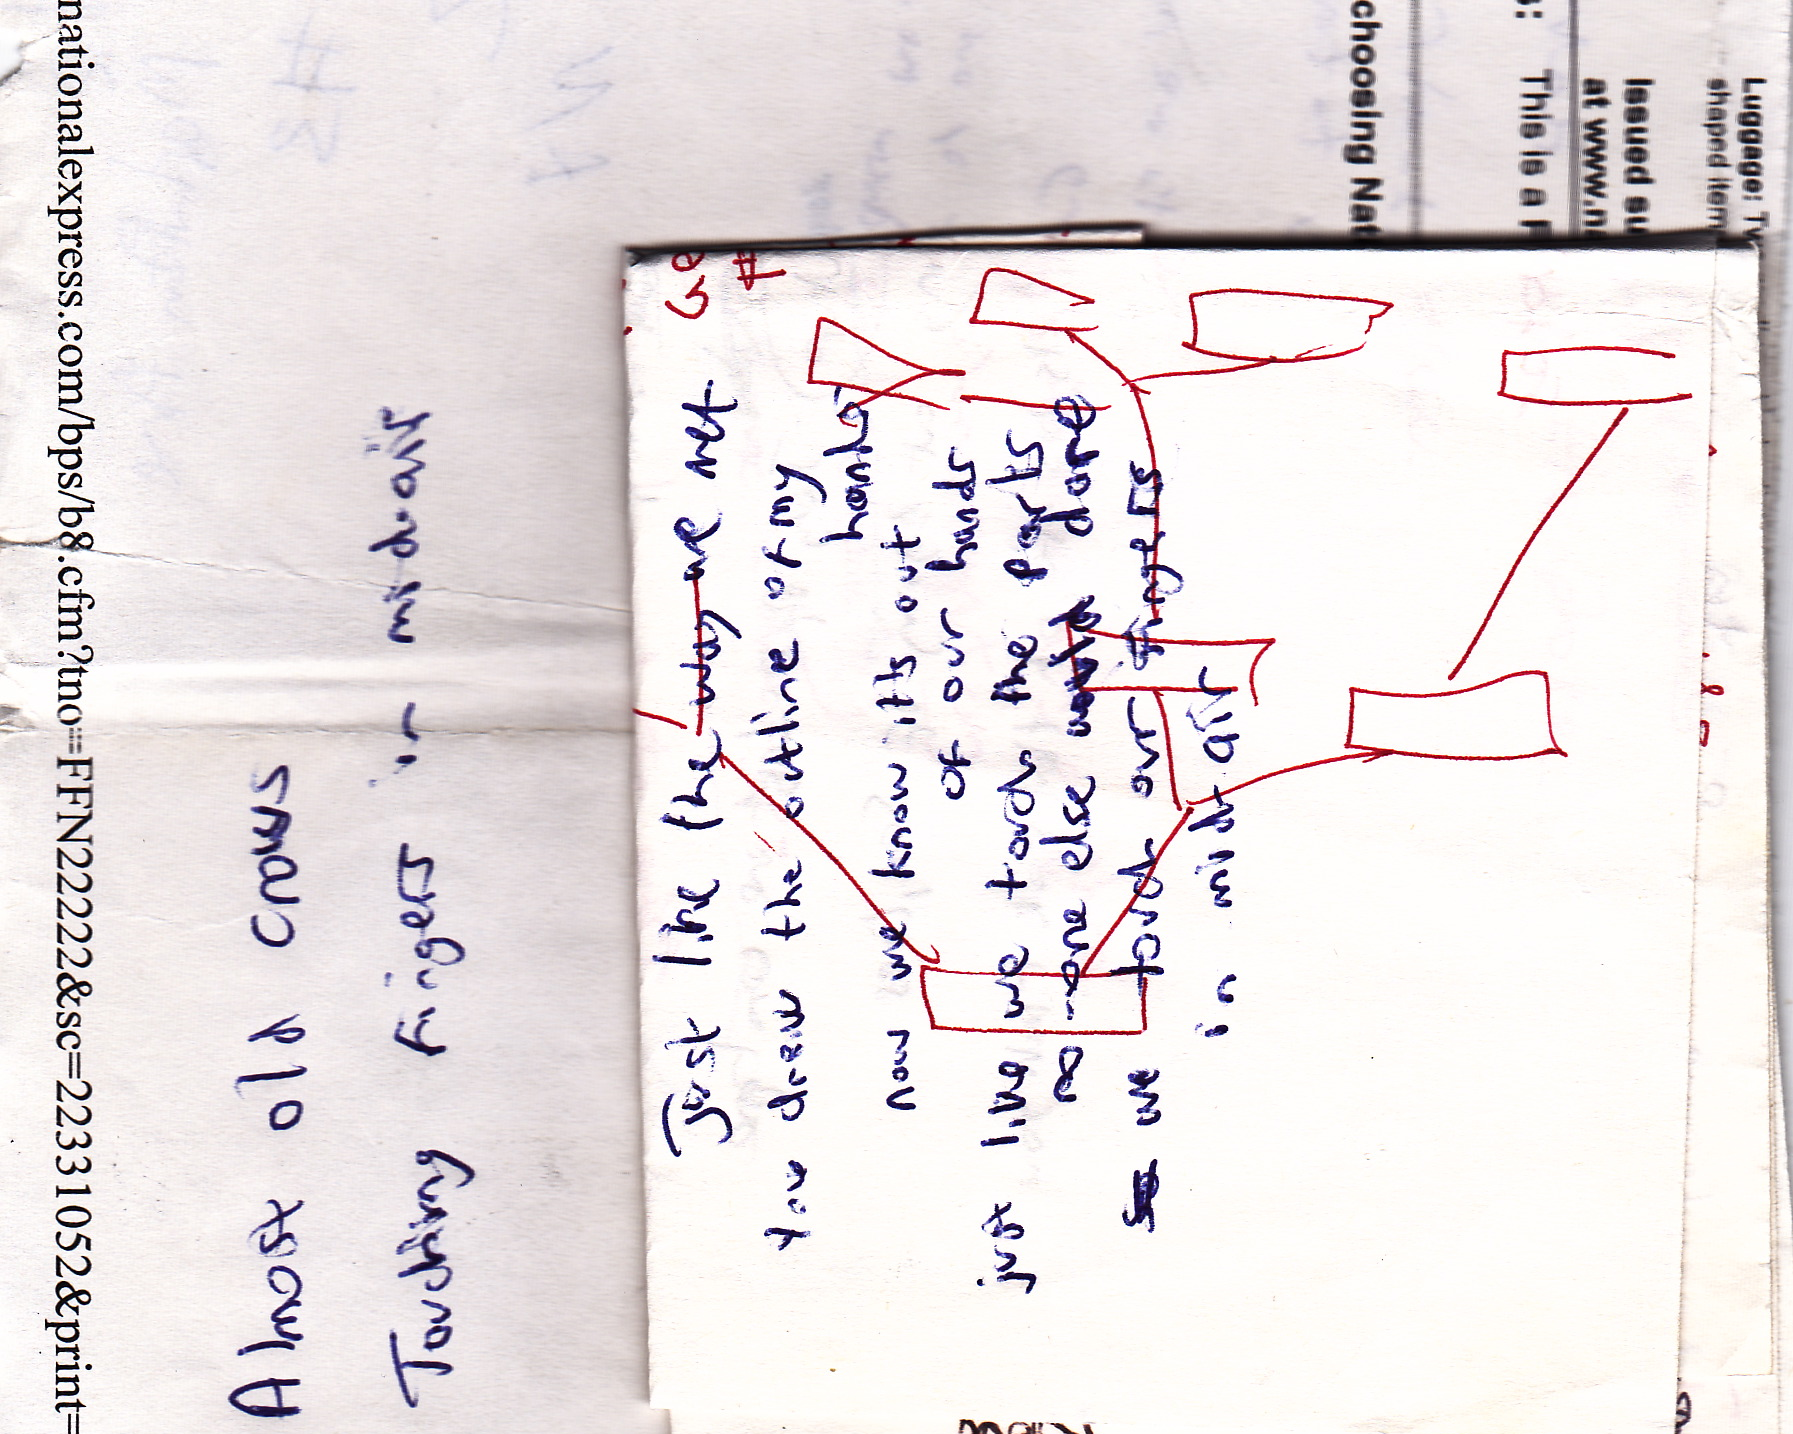 Almost old crows
Touching fingers in mid-air
Just like the way we met
You draw the outline of my
hands
now we know it's out
of our hands
just like we touch the parts
no-one else would dare
we touch our fingers
in mid-air
nationalexpress.com/bps/b8.cfm?tno=FFN22222&sc=2231052&print=
choosing Nat
This is a F
Issued su
at www.n
Luggage: Tw
shaped item